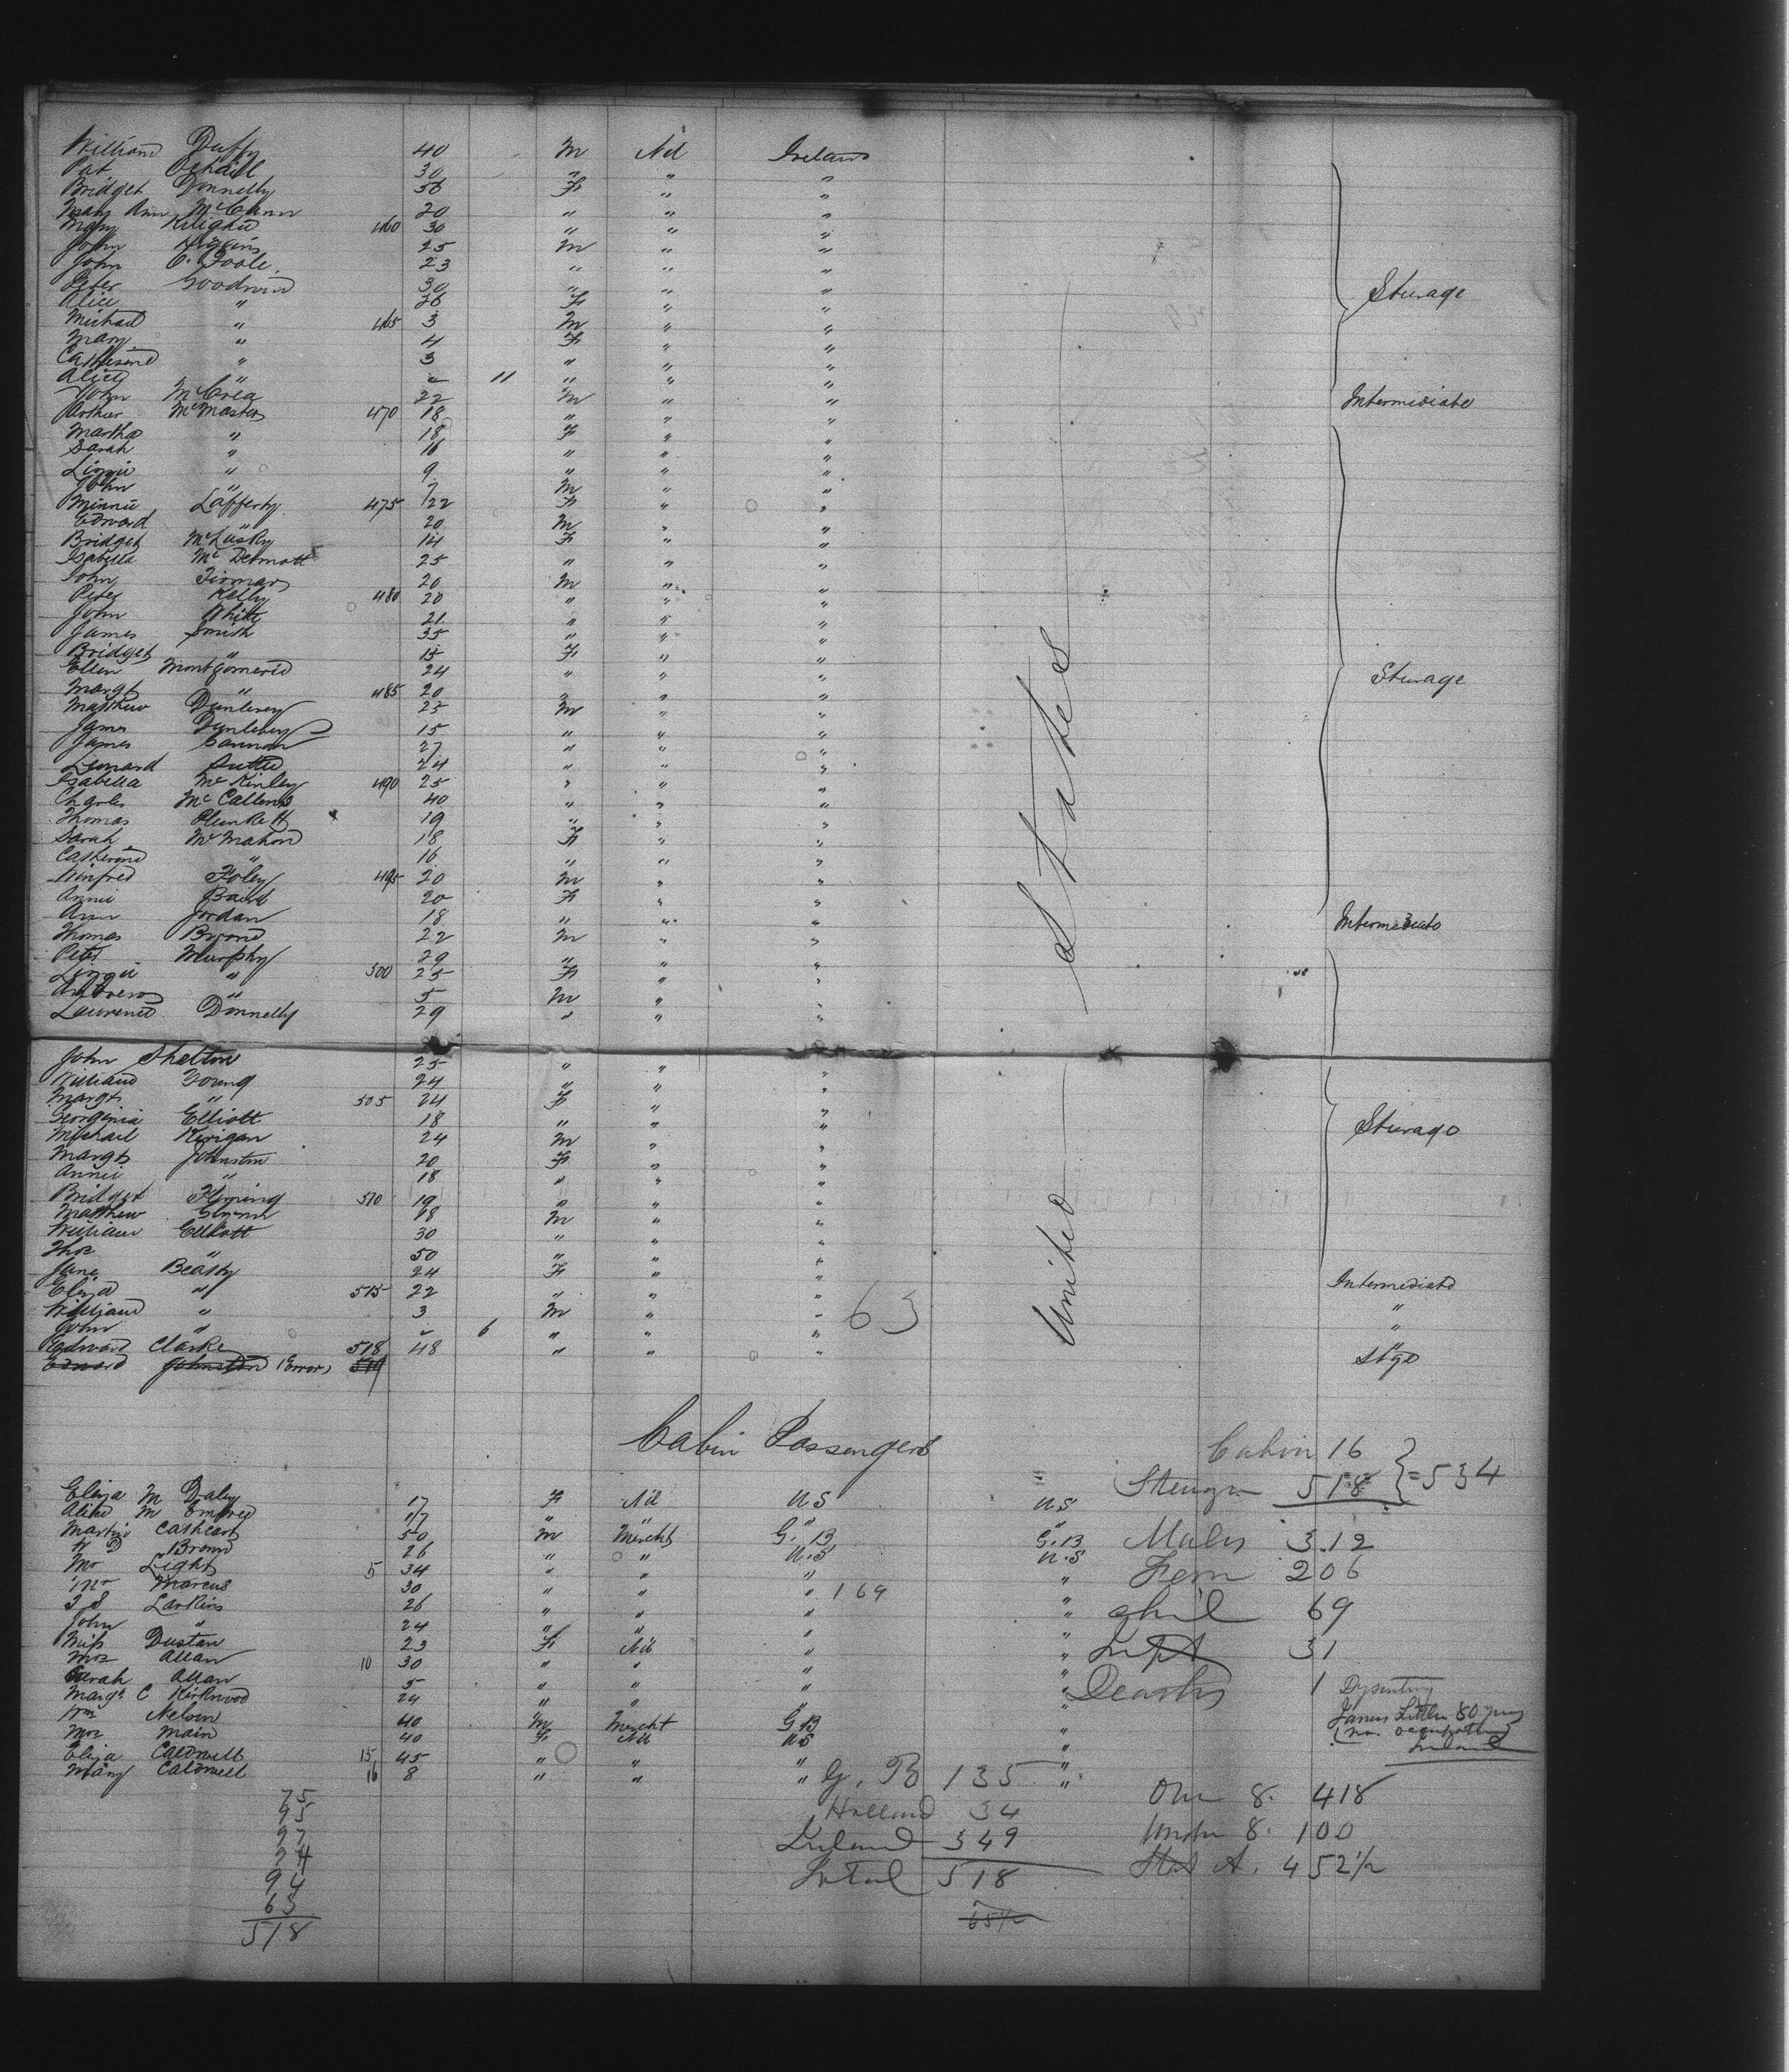 William Duffy 40 M Nil Ireland
Pat 30 " " "
Bridget Donnelly 56 F " "
Mary Ann McCann 20 " " "
Mary 460 30 " " "
John Higgins 25 M " "
John O'Toole 23 " " "
Peter Goodwin 30 " " " Sturage
Alice " 26 F " "
Michael " 465 3 M " "
Mary " 4 F " "
Catherine " 3 " " "
" 11 " " "
John McCrea 22 M " " Intermediate
Arthur McMaster 470 18 " " "
Martha " 18 F " "
Sarah " 16 " " "
Lizzie " 9 " " "
John " 7 M " "
Minnie Lafferty 475 22 F " "
Edward " 20 M " "
Bridget McLusky 14 F " "
Isabella McDermott 25 " " "
John 20 M " "
Peter Kelly 480 20 " " "
John White 21 " " "
James Smith 35 " " "
Bridget " 15 F " "
Ellen Montgomerie 24 " " " Sturage
Margt " 485 20 " " "
Matthew Dunlevey 25 M " "
James Dunlevey 15 " " "
James Gannon 27 " " "
Leonard 24 " " "
Isabella McKinley 490 25 " " "
Charles McCallum 40 " " "
Thomas Plunkett 19 " " "
Sarah McMahon 18 F " "
Catherine " 16 " " "
Winfred Foley 495 20 M " "
Annie Baird 20 F " "
Ann Jordan 18 " " " Intermediate
Thomas 22 M " "
Peter Murphy 29 " " "
Lizzie " 500 25 F " "
Andrew " 5 M " "
Lawrence Donnelly 29 " " "
States
John Shelton 25 " " "
William Young 24 " " "
Margt " 505 24 F " "
Georginia Elliott 18 " " " Sturage
Michael Kerigan 24 M " "
Margt Johnston 20 F " "
Annie " 18 " " "
Bridget Fleming 510 19 " " "
Matthew Glynn 18 M " "
William Elliott 30 " " "
Thos " 50 " " "
Jane Beasty 24 F " " Intermediate
Eliza " 515 22 " " " "
William " 3 M " " 63 "
John " 6 " " " "
Edward Clarke 518 48 " " " Stge
Edward Johnston (Error) 519
United
Cabin Passengers
Cabin 16
518 } = 534
Eliza M Daley 17 F Nil US US
M 17 " " " "
Cathcart 50 M Mercht G.B G.B Males 312
H D Brown 26 " " U.S U.S
Mr Light 5 34 " " " " Fem 206
Mr Marcus 30 " " " 169 "
Larkins 26 " " " " Chil 69
John " 24 " " " "
Miss Dustan 23 F Nil " " Inft 31
Mrs Allan 10 30 " " " "
Sarah Allan 5 " " " " Deaths 1 Dysentery
Margt C Kirkwood 24 " " " " James Little 80 yrs
Wm Nelson 40 M Mercht G.B " (no occupation)
Mrs Main 40 F Nil US " Ireland
Eliza Caldwell 15 45 " " " "
Mary Caldwell 16 8 " " " "
75
95
97
94
63
518
G.B 135
Holland 34
Ireland 349
Total 518
65½
Over 8. 418
Under 8. 100
Stat A. 452½